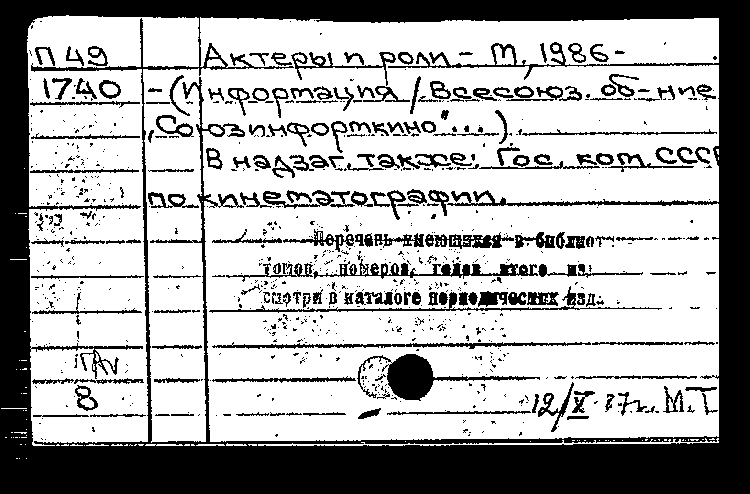 П 49 Актеры и роли. - М., 1986-
1740 - (Информация / Всесоюз. об-ние
"Союзинформкино"...).
В надзаг. также: Гос. ком. СССР
по кинематографии.
Перечень имеющихся в библиот
томов, номеров, годов этого из
смотри в каталоге периодических изд.
8
12/V 87 г. М.Т